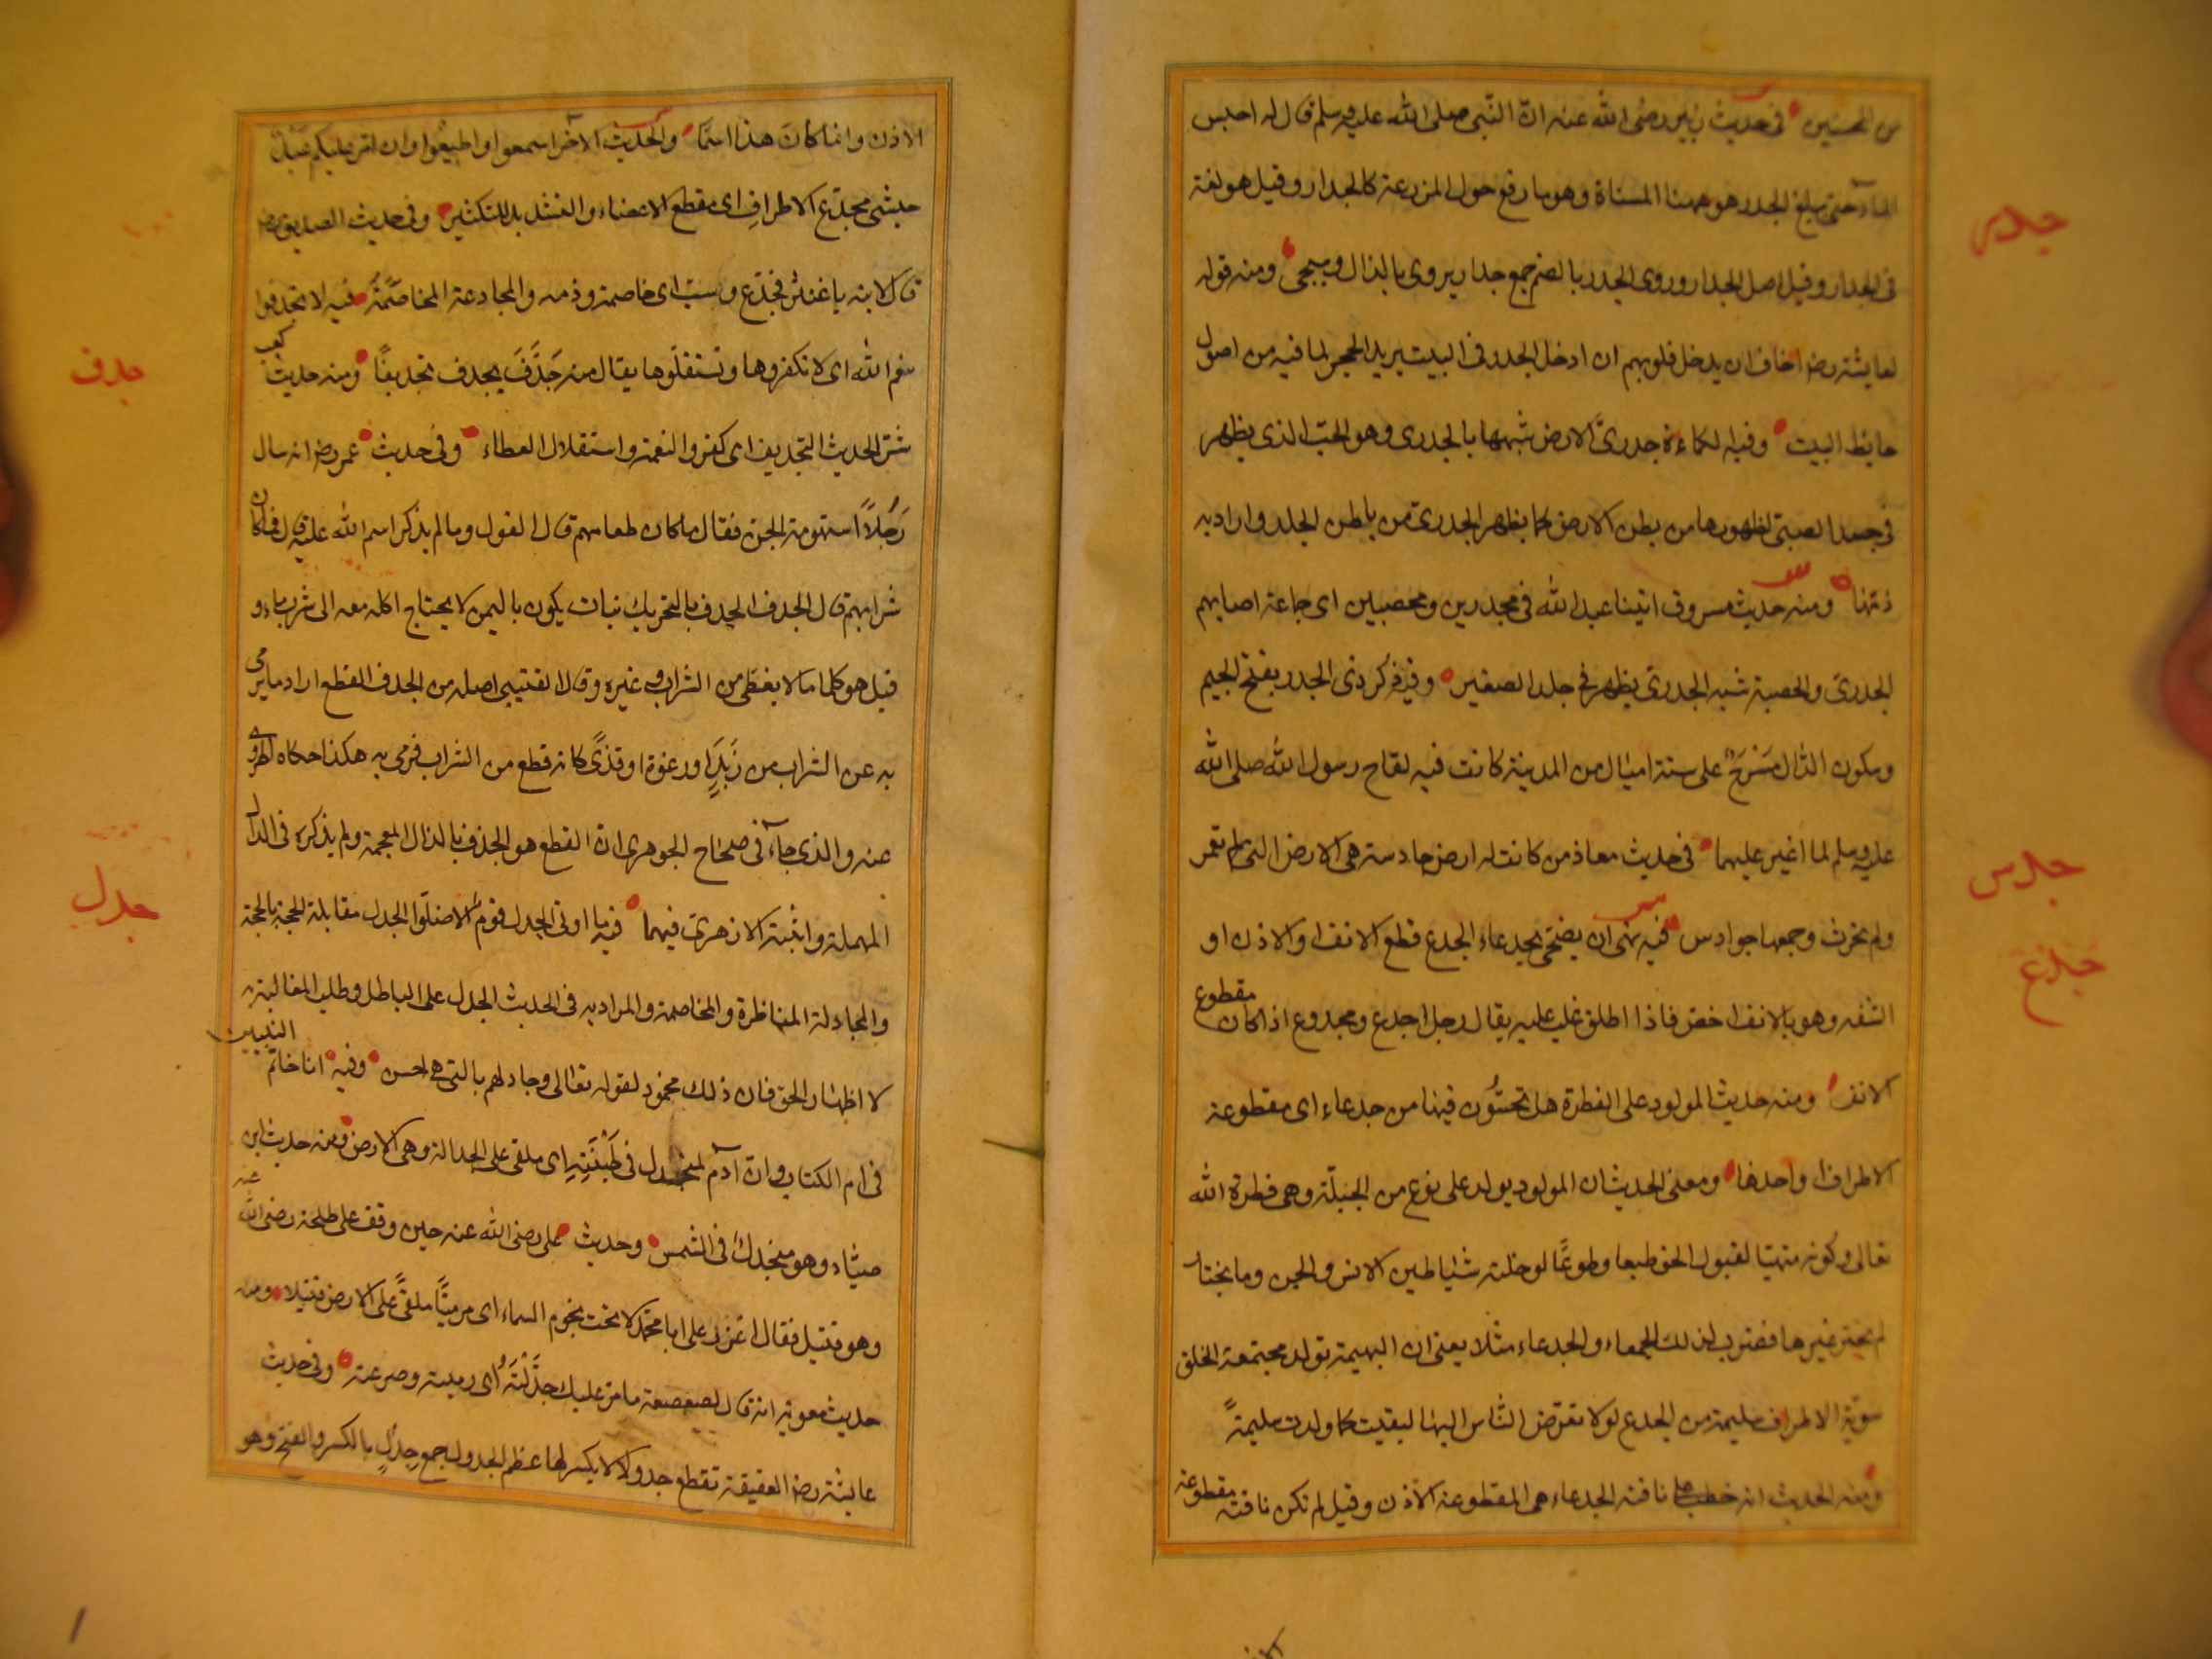 من المحبتين في حديث زبير رضى الله عنه ان النبى صلى الله عليه وسلم قال له احبس
الماء حتى يبلغ الجدر هو ههنا المسناة وهو ما رفع حول المزرعة كالجدار وقيل هو لغة
جدر
فى الجدار وقيل اصل الجدار وروى الجدر بالضم جمع جدار ويروى بالذال وسيجى ومنه قوله
لعايشة رضا اخاف ان يدخل قلوبهم ان ادخل الجدر فى البيت يريد الحجر لما فيه من اصول
حايط البيت وفيه الكماءة جدرى الارض شبهها بالجدرى وهو الحب الذى يظهر
فى جسد الصبى لظهورها من بطن الارض كما يظهر الجدرى من باطن الجلد واراد به
ذمها ومنه حديث مسروق اتينا عبد الله فى مجدرين ومحصبين اى جماعة اصابهم
الجدرى والحصبة شبه الجدرى يظهر فى جلد الصغير وفيه ذكر ذى الجدر بفتح الجيم
وسكون الدال مسرح على ستة اميال من المدينة كانت فيه لقاح رسول الله صلى الله
عليه وسلم لما اغير عليها فى حديث معاذ من كانت له ارض جادسة هى الارض التى لم تعمر
جدس
ولم تحرث وجمعها جوادس فيه نهى ان يضحى بجدعاء الجدع قطع الانف والاذن او
جدع
الشفه وهو بالانف اخص فاذا اطلق غلب عليه يقال رجل اجدع ومجدوع اذا كان مقطوع
الانف ومنه حديث المولود على الفطرة هل تحسون فيها من جدعاء اى مقطوعة
الاطراف او احدها ومعنى الحديث ان المولود يولد على نوع من الجبلة وهى فطرة الله
تعالى وكونه متهيا لقبول الحق طبعا وطوعا لو خلته شياطين الانس والجن وما يختار
لم يختر غيرها فضرب لذلك الجمعاء والجدعاء مثلا يعنى ان البهيمة تولد مجتمعة الخلق
سوية الاطراف سليمة من الجدع لولا تعرض الناس اليها لبقيت كما ولدت سليمة
ومنه الحديث انه خطب على ناقته الجدعاء هى المقطوعة الاذن وقيل لم تكن ناقته مقطوعة
الاذن وانما كان هذا اسما والحديث الاخر اسمعوا واطيعوا وان امر عليكم عبد
حبشى مجدع الاطراف اى مقطع الاعضاء والتشديد للتكثير وفى حديث الصديق رضا
قال لابنه يا غنثر فجدع وسب اى خاصمه وذمه والمجادعة المخاصمة فيه لا تجدفوا
نعم الله اى لا تكفروها وتستقلوها يقال منه جدف يجدف تجديفا ومنه حديث كعب
جدف
شر الحديث التجديف اى كفر النعمة واستقلال العطاء وفى حديث عمر رضا انه سال
رجلا استهوته الجن فقال ما كان طعامهم قال الفول وما لم يذكر اسم الله عليه قال فما كان
شرابهم قال الجدف الجدف بالتحريك نبات يكون باليمن لا يحتاج اكله معه الى شرب ماء و
قيل هو كلما ما لا يغطى من الشراب وغيره وقال القتيبى اصله من الجدف القطع اراد ما يرمى
به عن الشراب من زبد او رغوة او قذى كانه قطع من الشراب فرمى به هكذا حكاه الهروى
عنه والذى جاء فى صحاح الجوهرى ان القطع هو الجذف بالذال المعجمة ولم يذكره فى الدال
المهملة واثبته الازهرى فيهما فيه ما اوتى الجدل قوم الا ضلوا الجدل مقابلة الحجة بالحجة
جدل
والمجادلة المناظرة والمخاصمة والمراد به فى الحديث الجدل على الباطل وطلب المغالبة به
لا اظهار الحق فان ذلك محمود لقوله تعالى وجادلهم بالتى هى احسن وفيه انا خاتم النبيين
فى ام الكتاب وان آدم لمنجدل فى طينته اى ملقى على الجدالة وهى الارض ومنه حديث ابن
صياد وهو منجدل فى الشمس وحديث على رضى الله عنه حين وقف على طلحة رضى الله عنه
وهو قتيل فقال اعزز على ابا محمد ان اراك مجدلا تحت نجوم السماء اى مرميا ملقى على الارض قتيلا ومنه
حديث معوية انه قال لصعصعة ما مر عليك جدلته اى رميته وصرعته وفى حديث
عايشة رضا العقيقة تقطع جدولا لا يكسر لها عظم الجدول جمع جدل بالكسر والفتح وهو